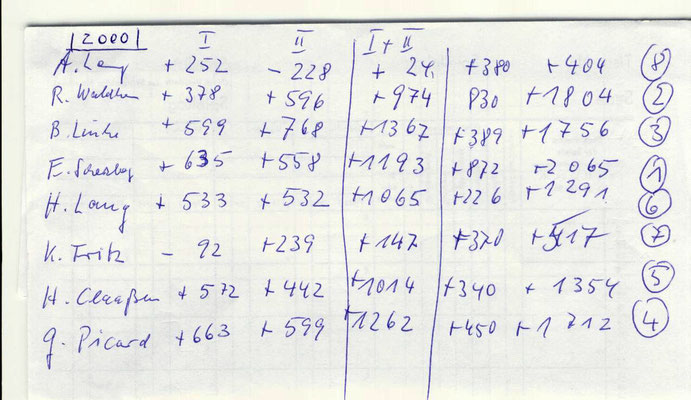 2000 I II I + II
A. Lang + 252 - 228 + 24 +380 +404 8
R. + 378 + 596 +974 830 +1804 2
B. Linke + 599 + 768 +1367 +389 +1756 3
E. + 635 +558 +1193 +872 +2065 1
H. Lang + 533 + 532 +1065 +226 +1291 6
K. Fritz - 92 +239 +147 +370 +517 7
H. Claaßen + 572 + 442 +1014 +340 + 1354 5
G. Picard +663 + 599 +1262 +450 +1712 4